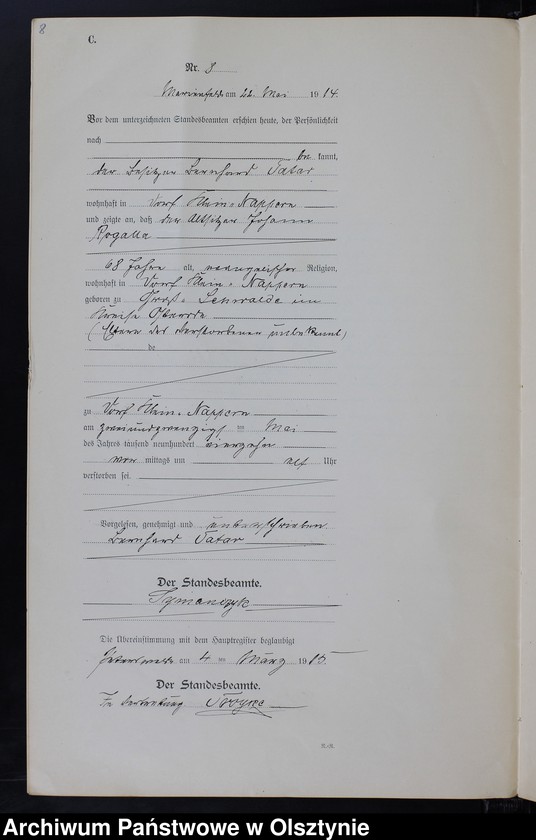 8
C.
Nr. 8
Marienfelde am 22. Mai 1914.
Vor dem unterzeichneten Standesbeamten erschien heute, der Persönlichkeit
nach
be kannt,
der Besitzer Bernhard Tatar
wohnhaft in Dorf Klein-Nappern
und zeigte an, daß der Altsitzer Johann
Rogalla
68 Jahre alt, evangelischer Religion,
wohnhaft in Dorf Klein-Nappern
geboren zu Groß-Lehwalde im
Kreise Osterode
(Eltern des Verstorbenen unbekannt)
de
zu Dorf Klein-Nappern
am zweiundzwanzigsten Mai
des Jahres tausend neunhundert vierzehn
vor mittags um elf Uhr
verstorben sei.
Vorgelesen, genehmigt und unterschrieben
Bernhard Tatar
Der Standesbeamte.
Szymanczyk
Die Übereinstimmung mit dem Hauptregister beglaubigt
am 4 ten März 1915.
Der Standesbeamte.
In Vertretung
Archiwum Państwowe w Olsztynie